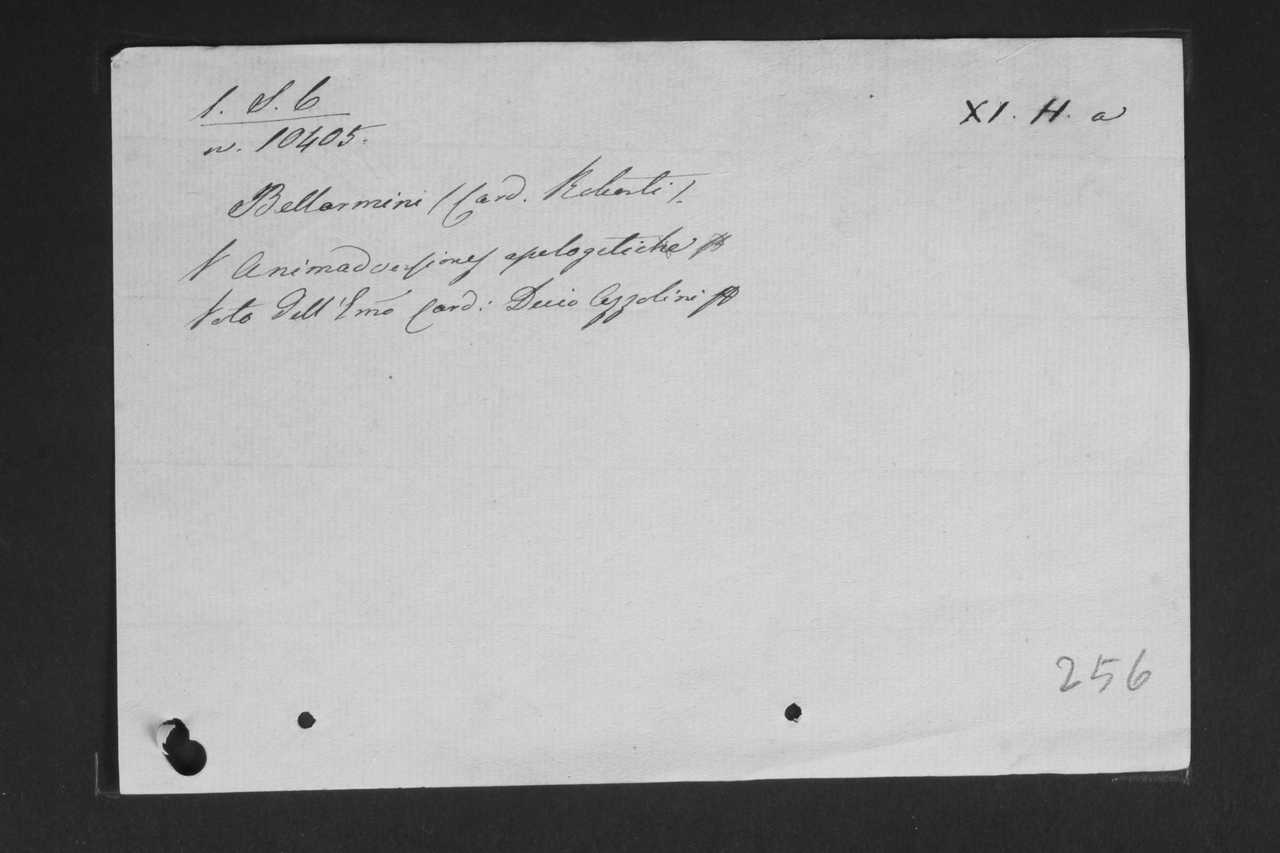 1. S. C
XI. H. a
n. 10405.
Bellarmini (Card. Roberti).
Animadversiones apologetiche
Voto dell'Emo Card: Decio Azzolini
256